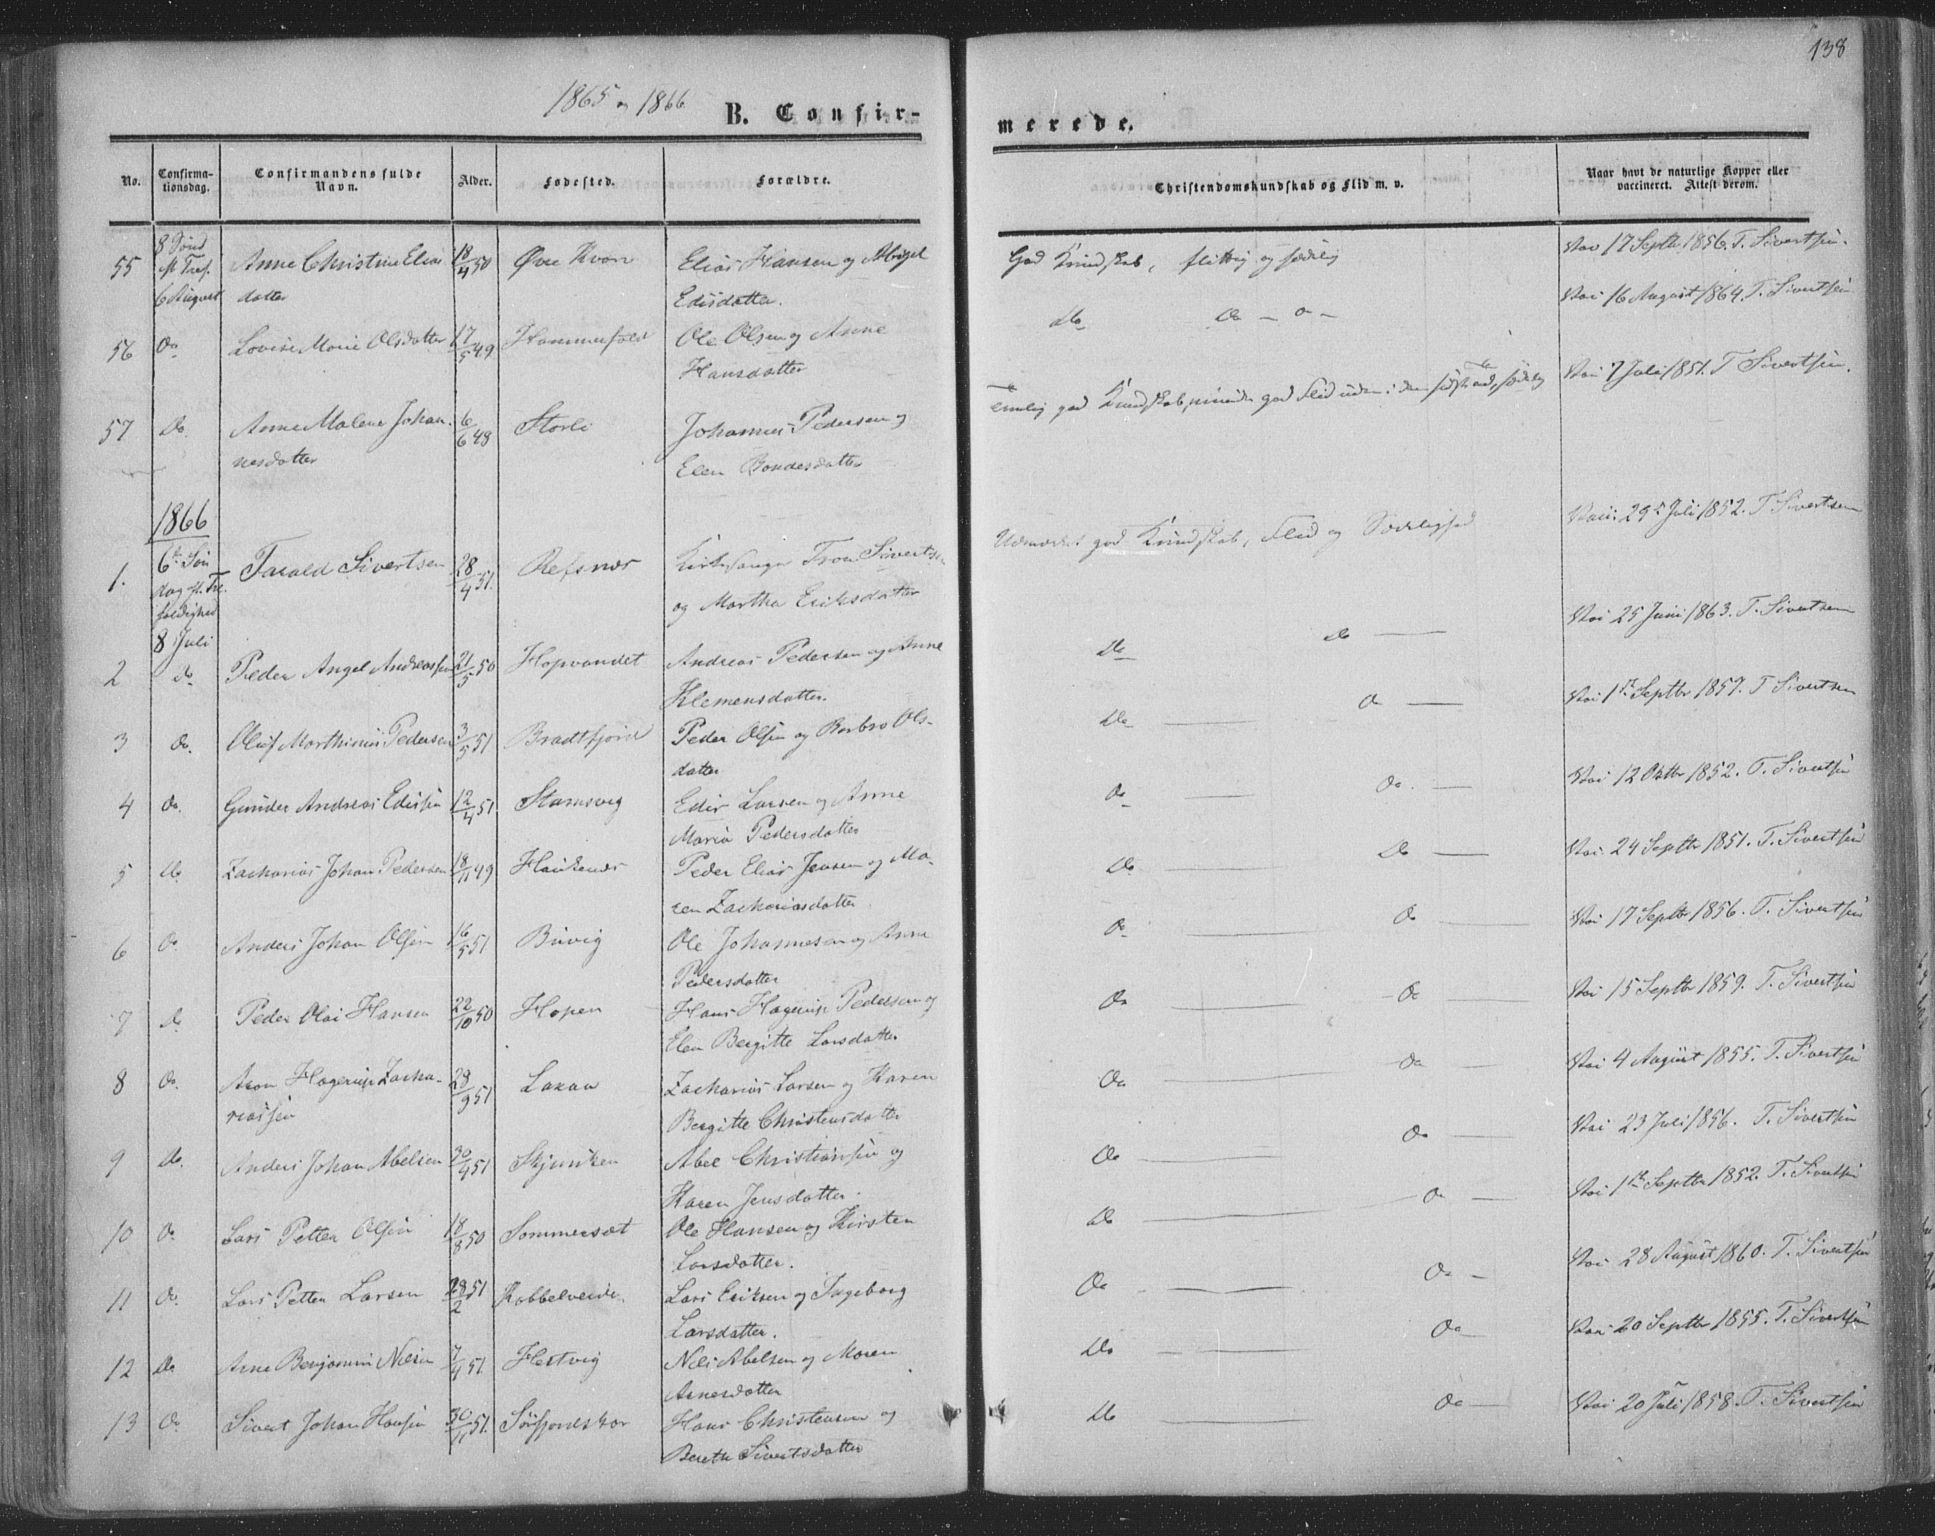 138
1865 og 1866
B. Confir-
merede.
No. Confirmationsdag. Confirmandens fulde Navn. Alder. Fødested. Forældre. Christendomskundskab og Flid m. v. Naar havt de naturlige Kopper eller vaccineret. Attest derom.
8 Sønd
55 Tref. Anne Christine Elias 18/4 50 Øvre Kvarv Elias Hansen og Abigel God Kundskab, flittig og sædelig Vac 17 Septbr 1856. T. Sivertsen.
6 August datter Edisdatter.
56 Do Lovise Marie Olsdatter 17/5 49 Hammerfald Ole Olsen og Anne Do Do - o - Vac 16 August 1864. T. Sivertsen
Hansdatter
57 Do Anne Malene Johan- 6/6 48 Storli Johannes Pedersen og Temlig god Kundskab, mindre god Flid uden i den sidste Tid, sædelig Vac 7 Juli 1851. T Sivertsen.
nesdatter Elen Bondesdatter
1866
1. 6te Søn Tarald Sivertsen 28/4 51. Refsnes Kirkesanger Tron Sivertsen Udmærket god Kundskab, Flid og Sædelighed Vac. 29de Juli 1852. T Sivertsen
dag e. Tre- og Martha Eriksdatter
foldighed
8 Juli
2 do Peder Angel Andreassen 21/5 50 Hopvandet Andreas Pedersen og Anne Do do Vac 25 Juni 1863. T. Sivertsen
Klemensdatter.
3 do. Oluf Marthinus Pedersen 3/5 51 Bradtfjord Peder Olsen og Barbro Ols- Do Do Vac 1ste Septbr 1857. T Sivertsen
datter
4 Do. Gunder Andreas Edissen 12/4 51. Stamsvig Edis Larsen og Anne Do Do. Vac 12 Oktbr 1852. T. Sivertsen
Maria Pedersdatter
5 Do Zacharias Johan Pedersen 18/11 49 Haukenes Peder Elias Jensen og Ma- Do Do Vac. 24 Septbr 1851. T. Sivertsen
ren Zachariasdatter
6 Do Anders Johan Olsen 16/5 51 Buvig Ole Johannesen og Anne Do Do Vac 17 Septbr 1856. T. Sivertsen
Pedersdatter
7 Do Peder Olai Hansen 22/10 50 Hopen Hans Hagerup Pedersen og Do Do Vac 15 Septbr 1859. T. Sivertsen
Elen Bergitte Larsdatter
8 Do. Aron Hagerup Zacha- 29/9 51 Lakaa Zacharias Larsen og Karen Do Do Vac 4 August 1855. T. Sivertsen
riassen Bergitte Christensdatter
9 Do. Anders Johan Abelsen 30/4 51 Skjunken Abel Christiansen og Do Do Vac 23 Juli 1856. T. Sivertsen
Karen Jensdatter.
10 Do Lars Petter Olsen 18/8 50 Sommerset Ole Hansen og Kirsten Do Do Vac 1ste Septbr 1852. T. Sivertsen
Larsdatter.
11 Do. Lars Petter Larsen 28/2 51 Kobbelveide. Lars Eriksen og Ingeborg Do Do Vac 28 August 1860. T. Sivertsen
Larsdatter.
12 Do Arne Benjamin Nilsen 7/4 51. Hestvig Nils Abelsen og Maren Do Do Vac 20 Septbr 1855. T. Sivertsen
Arnesdatter
13 Do Sivert Johan Hansen 30/11 51. Hans Christensen og Do Do Vac 20 Juli 1858. T. Sivertsen
Bereth Sivertsdatter